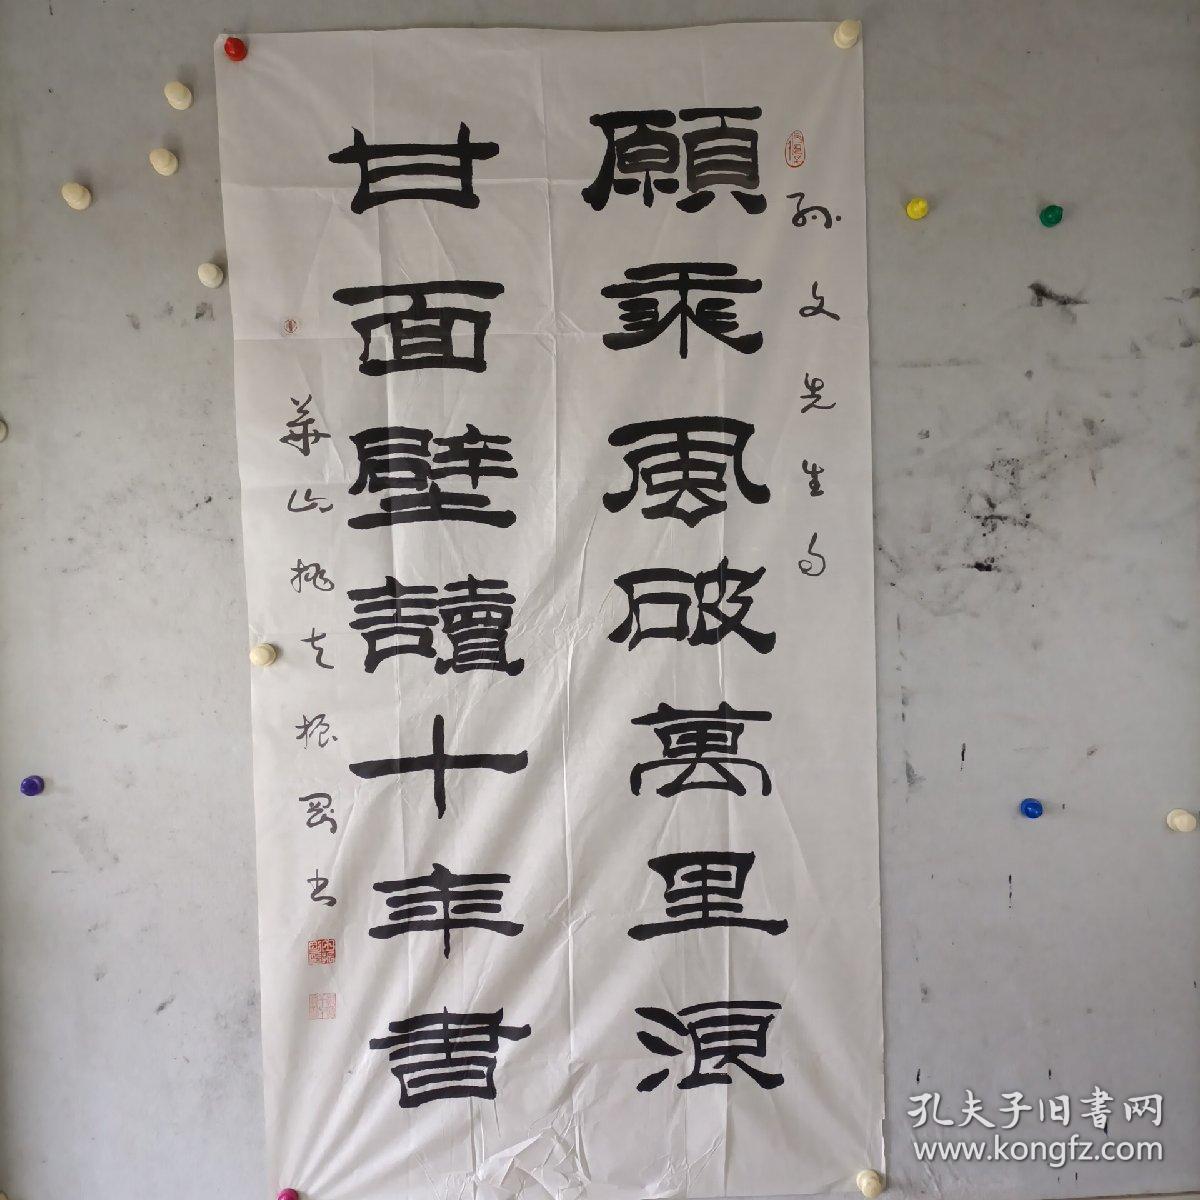 孙文先生句
願乘風破萬里浪
甘面壁讀十年書
華山挑夫振罡书
孔夫子旧書网
www.kongfz.com